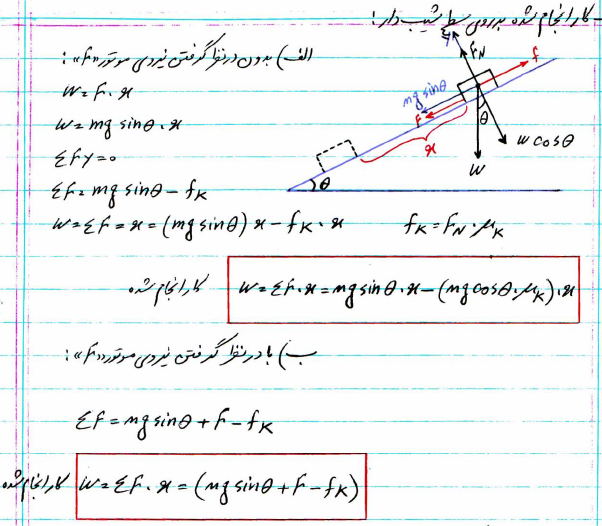 - کار انجام شده بر روی سطح شیب دار:
الف) بدون در نظر گرفتن نیروی موتور «F»:
W = F . x
W = mg sinθ . x
ΣFy = 0
ΣF = mg sinθ - fK
W = ΣF = x = (mg sinθ) x - fK . x
fK = FN . μK
کار انجام شده
W = ΣF . x = mg sinθ . x - (mg cosθ . μK) . x
ب) با در نظر گرفتن نیروی موتور «F»:
ΣF = mg sinθ + F - fK
کار انجام شده
W = ΣF . x = (mg sinθ + F - fK)
y
FN
f
mg sinθ
F
x
θ
W cosθ
W
θ